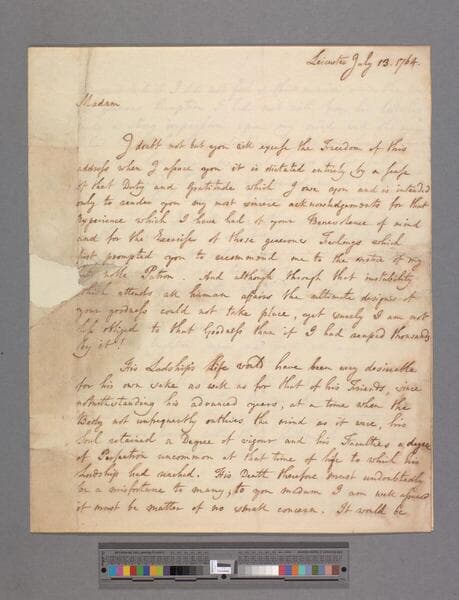 Leicester July 13. 1764.
Madam
I doubt not but you will excuse the Freedom of this
address when I assure you it is dictated entirely by a sense
of that Duty and Gratitude which I owe you and is intended
only to render you my most sincere acknowledgements for that
experience which I have had of your Benevolence of mind
and for the Exercise of those generous Feelings which
first prompted you to recommend me to the notice of my
late noble Patron. And although through that instability
which attends all human affairs the ultimate designs of
your goodness could not take place, yet surely I am not
less obliged to that Goodness than if I had reaped thousands
by it!
His Lordship's life would have been very desireable
for his own sake as well as for that of his Friends, since
notwithstanding his advanced years, at a time when the
Body not unfrequently outlives the mind as it were, his
Soul retained a Degree of vigour and his Faculties a degree
of Perfection uncommon at that time of life to which his
Lordship had reached. His Death therefore must undoubtedly
be a misfortune to many, to you madam I am well assured
it must be matter of no small concern. It would be